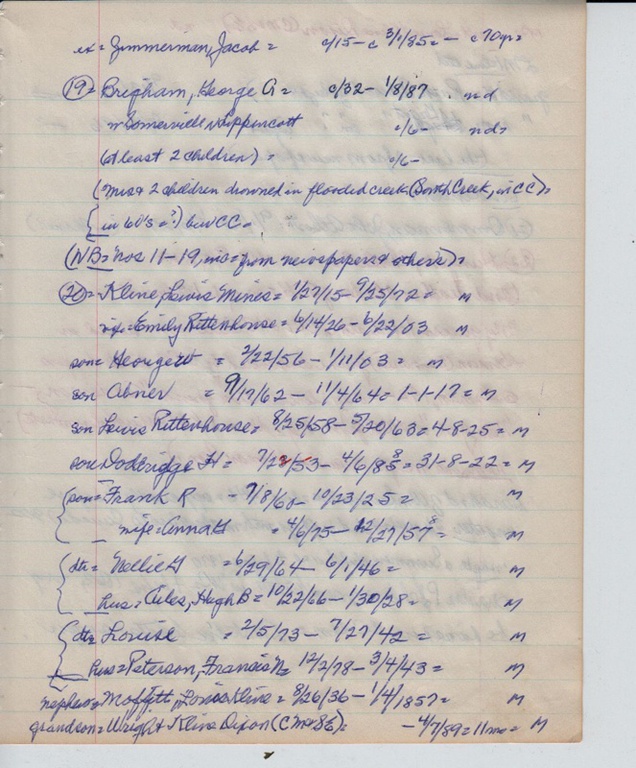 ex = Zimmerman, Jacob = c/15 - c 3/1/85 = - c 70 yr =
(19) = Brigham, George G = c/32 - 1/8/87 . nd
w Somerville Lippencott c/6- nd =
(at least 2 children) = c/6-
(Mrs & 2 children drowned in flooded creek (South Creek, in CC) =
{ in 60's = ?) bur CC =
(NB = Nos 11-19, inc = from newspapers & others) =
(20) = Kline, Lewis Mines = 1/27/15 - 9/25/72 = M
wife = Emily Rittenhouse = 6/14/26 - 6/22/03 M
son = George W = 2/22/56 - 1/11/03 = M
son Abner = 9/17/62 - 11/4/64 = 1-1-17 = M
son Lewis Rittenhouse = 8/25/58 - 5/20/63 = 4-8-25 = M
son Dodridge H = 7/23/53 - 4/6/85 = 31-8-22 = M
{ son = Frank R = 7/8/60 - 10/23/25 = M
wife = Anna H = 4/6/75 - 12/27/57 = M
{ dtr = Nellie G = 6/29/64 - 6/1/46 = M
hus = Ailes, Hugh B = 10/22/66 - 1/30/28 = M
{ dtr Louise = 2/5/73 - 7/27/42 = M
hus = Peterson, Francis N = 12/2/78 - 3/4/43 = M
nephew = Moffett, Louis Kline = 8/26/36 - 1/4/1857 = M
grandson = Wright Kline Dixon (C mor 8E) = - 4/7/89 = 11 mo = M